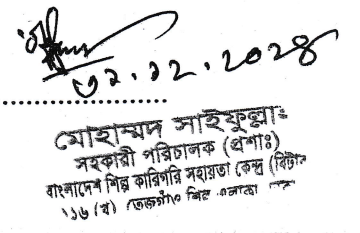 ০২.১২.২০২৪
মোহাম্মদ সাইফুল্লাহ
সহকারী পরিচালক (প্রশাঃ)
বাংলাদেশ শিল্প কারিগরি সহায়তা কেন্দ্র (বিটাক
১১৬ (খ) তেজগাঁও শিল্প এলাকা